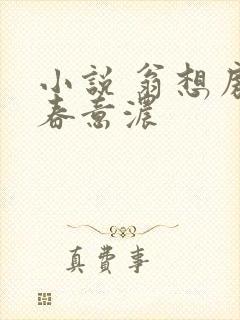 小說 翁想
春意濃
真費事